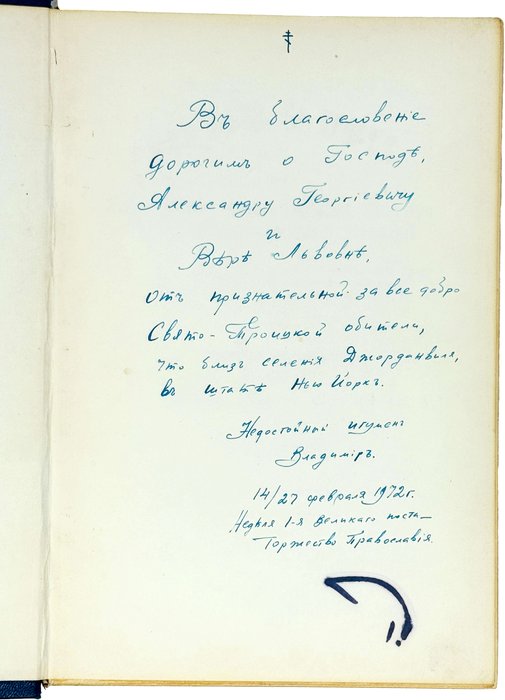 Въ благословенiе
дорогимъ о Господѣ,
Александру Георгiевичу
и
Вѣрѣ Львовнѣ,
отъ признательной за все добро
Свято-Троицкой обители,
что близъ селенiя Джорданвилля,
въ штатѣ Нью Йоркъ.
Недостойный игуменъ
Владимiръ.
14/27 февраля 1972г.
Недѣля 1-я Великаго поста—
Торжество Православiя.